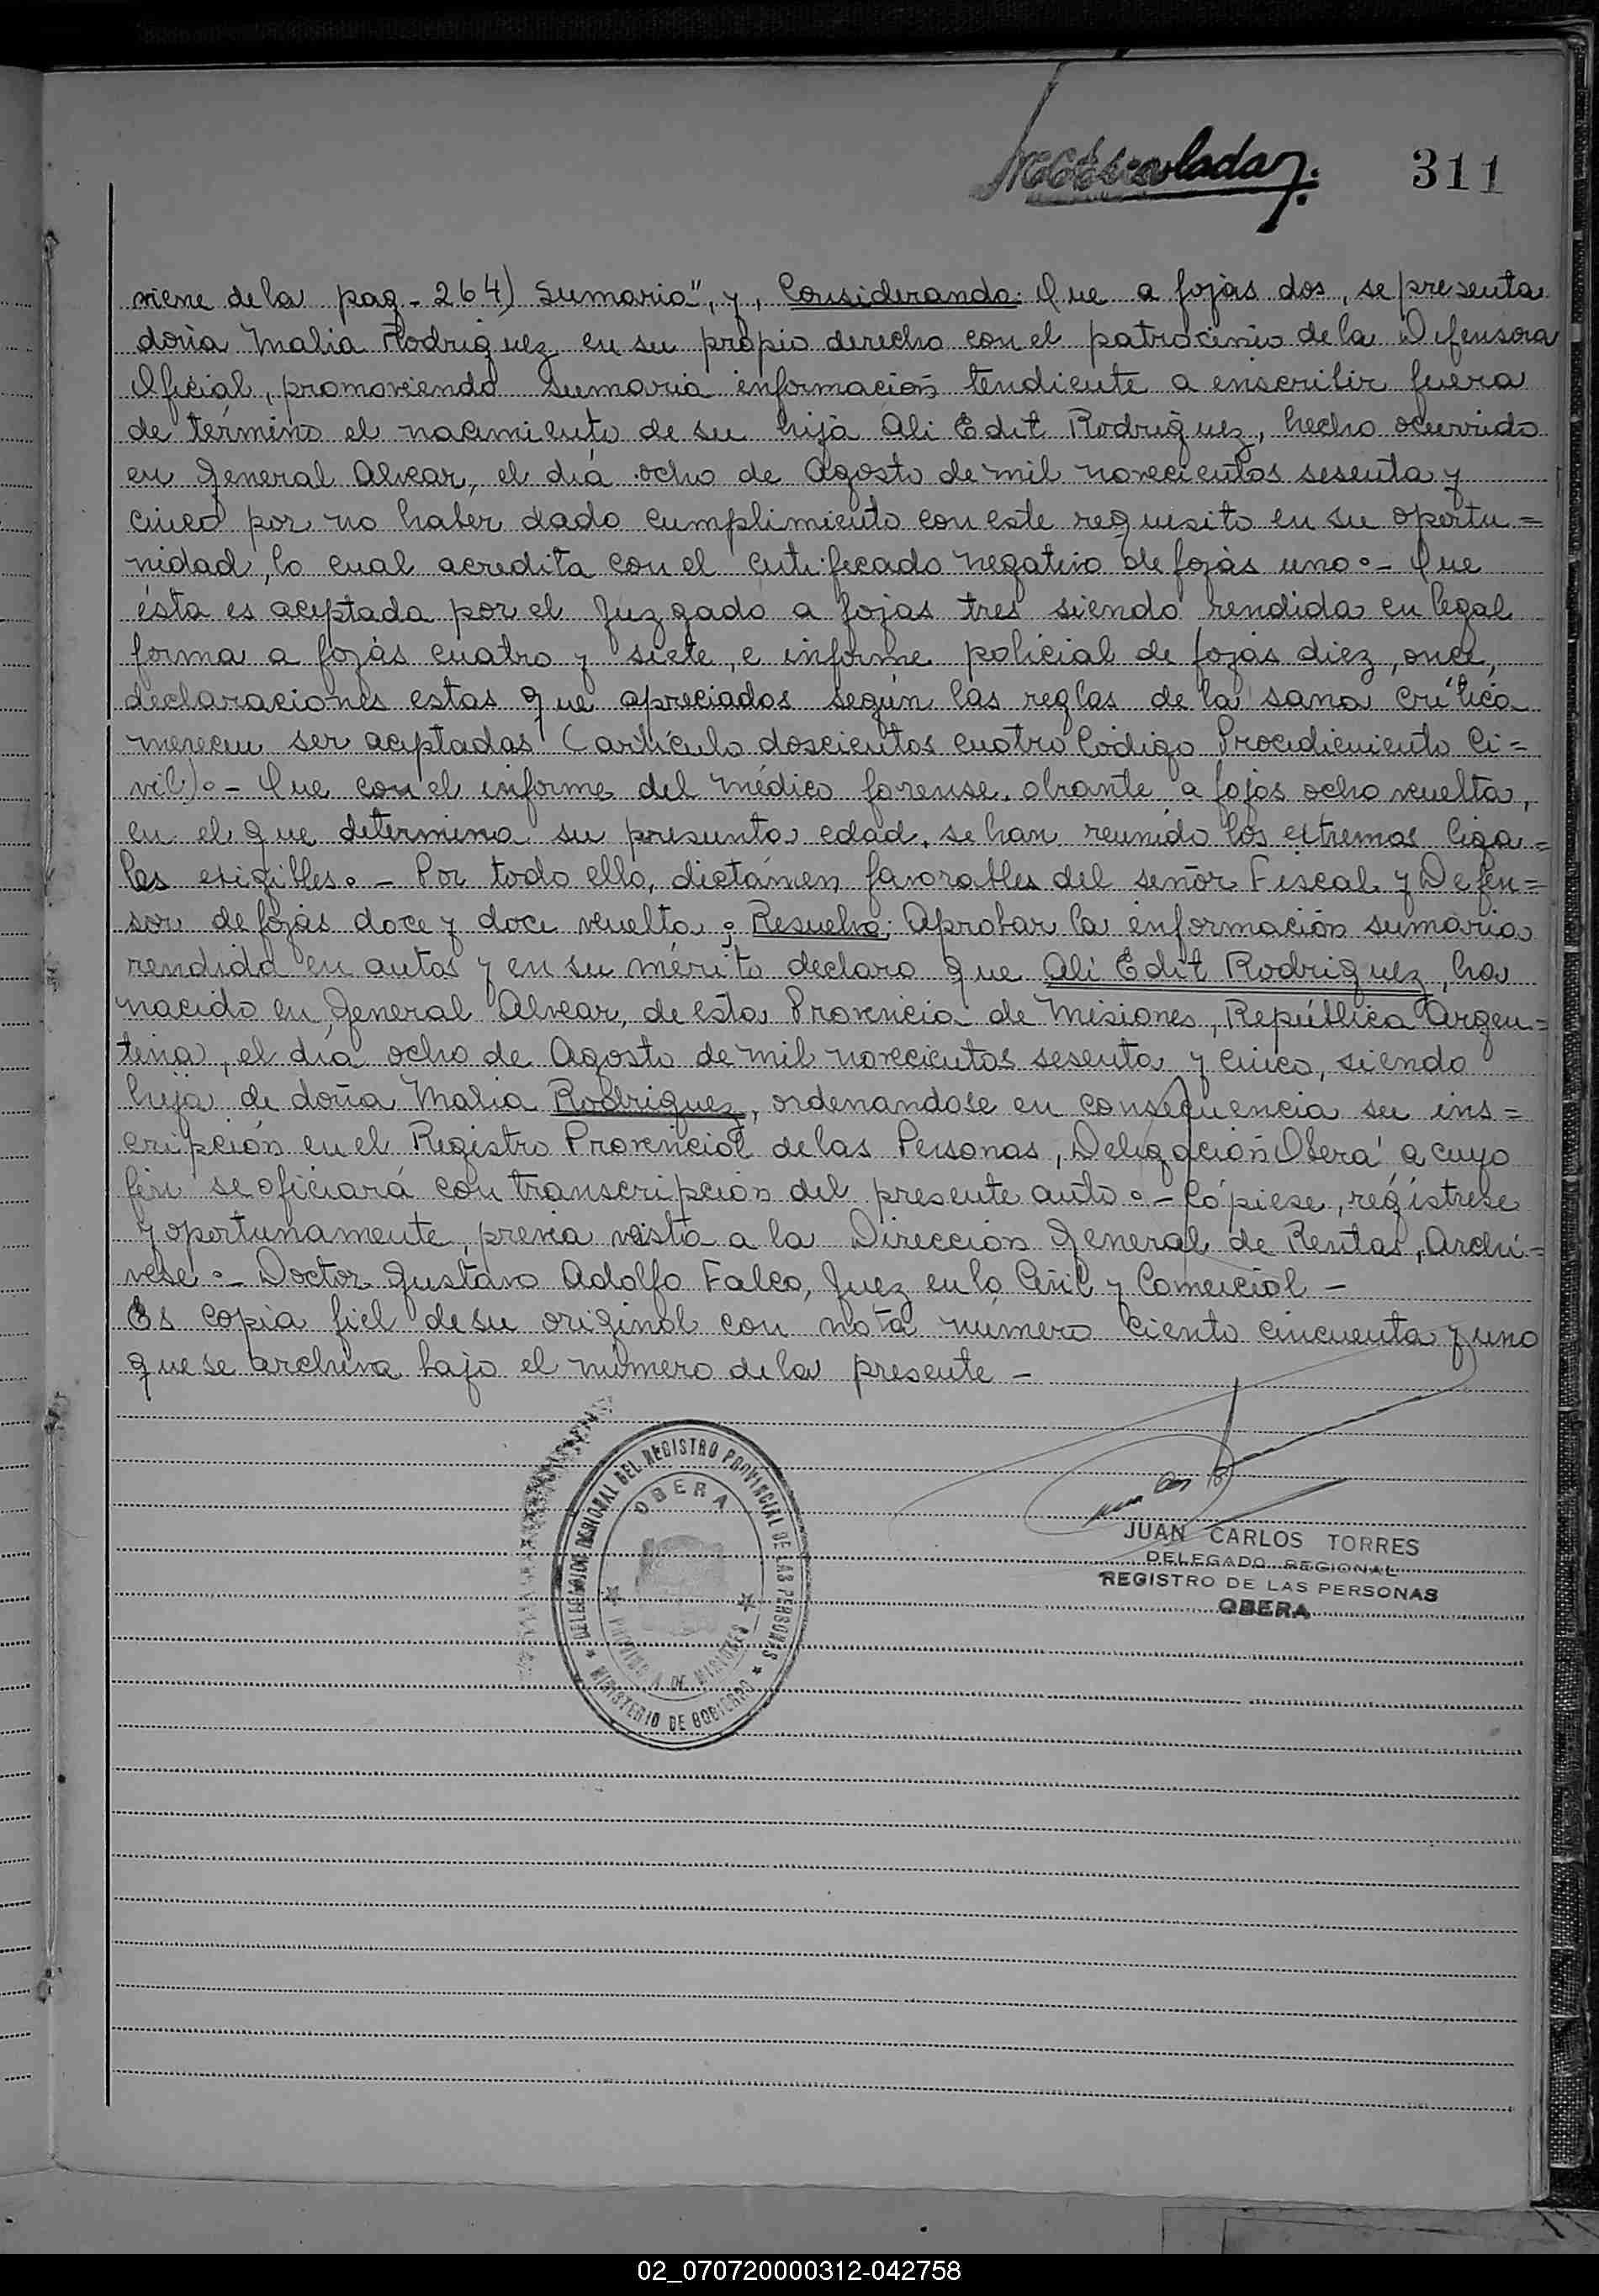 311
viene de la pag - 264) Sumario", y, Considerando: Que a fojas dos, se presenta
doña Malia Rodriguez en su propio derecho con el patrocinio de la Defensora
Oficial, promoviendo sumaria información tendiente a enscribir fuera
de término el nacimiento de su hija Ali Edit Rodriguez, hecho ocurrido
en General Alvear, el día ocho de Agosto de mil novecientos sesenta y
cinco por no haber dado cumplimiento con este requisito en su oportu=
nidad, lo cual acredita con el certificado negativo de fojas uno.- Que
ésta es aceptada por el Juzgado a fojas tres siendo rendida en legal
forma a fojas cuatro y siete, e informe policial de fojas diez, once,
declaraciones estas que apreciadas según las reglas de la sana crítica
merecen ser aceptadas (artículo doscientos cuatro Código Procedimiento Ci=
vil).- Que con el informe del médico forense, obrante a fojas ocho vuelta,
en el que determina su presunta edad, se han reunido los extremos lega=
les exigibles.- Por todo ello, dictámen favorables del señor Fiscal y Defen=
sor de fojas doce y doce vuelta; Resuelvo: Aprobar la información sumaria
rendida en autos y en su mérito declaro que Ali Edit Rodriguez, ha
nacido en General Alvear, de esta Provincia de Misiones, República Argen=
tina, el día ocho de Agosto de mil novecientos sesenta y cinco, siendo
hija de doña Malia Rodriguez, ordenandose en consequencia su ins=
cripción en el Registro Provincial de las Personas, Delegación Oberá a cuyo
fin se oficiará con transcripción del presente auto.- Cópiese, regístrese
y oportunamente, previa vista a la Dirección General de Rentas, Archi=
vese.- Doctor Gustavo Adolfo Falco, Juez en lo Civil y Comercial -
Es copia fiel de su original con nota número ciento cincuenta y uno
que se archiva bajo el número de la presente -
DELEGACION REGIONAL DEL REGISTRO PROVINCIAL DE LAS PERSONAS
OBERA
PROVINCIA DE MISIONES
MINISTERIO DE GOBIERNO
JUAN CARLOS TORRES
DELEGADO REGIONAL
REGISTRO DE LAS PERSONAS
OBERA
02_070720000312-042758